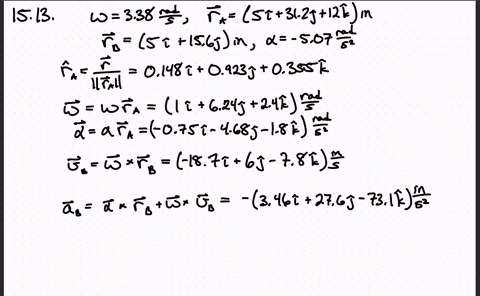 15.13. ω = 3.38 rad/s, r⃗_A = (5î + 31.2ĵ + 12k̂) m
r⃗_B = (5î + 15.6ĵ) m, α = -5.07 rad/s²
r̂_A = r⃗/||r⃗_A|| = 0.148î + 0.923ĵ + 0.355k̂
ω⃗ = ωr⃗_A = (1î + 6.24ĵ + 2.4k̂) rad/s
α⃗ = ar⃗_A = (-0.75î - 4.68ĵ - 1.8k̂) rad/s²
v⃗_B = ω⃗ × r⃗_B = (-18.7î + 6ĵ - 7.8k̂) m/s
a⃗_B = α⃗ × r⃗_B + ω⃗ × v⃗_B = -(3.46î + 27.6ĵ - 73.1k̂) m/s²